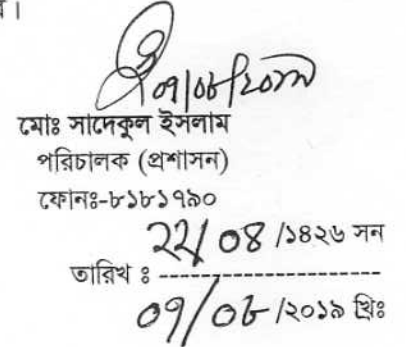 ০৭/০৮/২০১৯
মোঃ সাদেকুল ইসলাম
পরিচালক (প্রশাসন)
ফোনঃ-৮১৮১৭৯০
২২/ ০৪ /১৪২৬ সন
তারিখ ঃ ----------------------
০৭/ ০৮ /২০১৯ খ্রিঃ